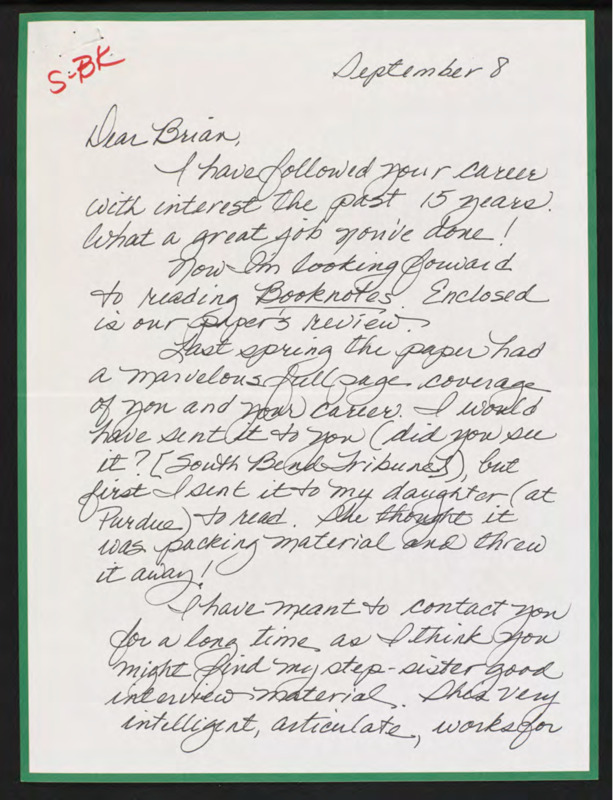 S-BK
September 8
Dear Brian,
I have followed your career
with interest the past 15 years.
What a great job you've done!
Now I'm looking forward
to reading Booknotes. Enclosed
is our paper's review.
Last spring the paper had
a marvelous full page coverage
of you and your career. I would
have sent it to you (did you see
it? [South Bend Tribune]), but
first I sent it to my daughter (at
Purdue) to read. She thought it
was packing material and threw
it away!
I have meant to contact you
for a long time as I think you
might find my step-sister good
interview material. She's very
intelligent, articulate, works for